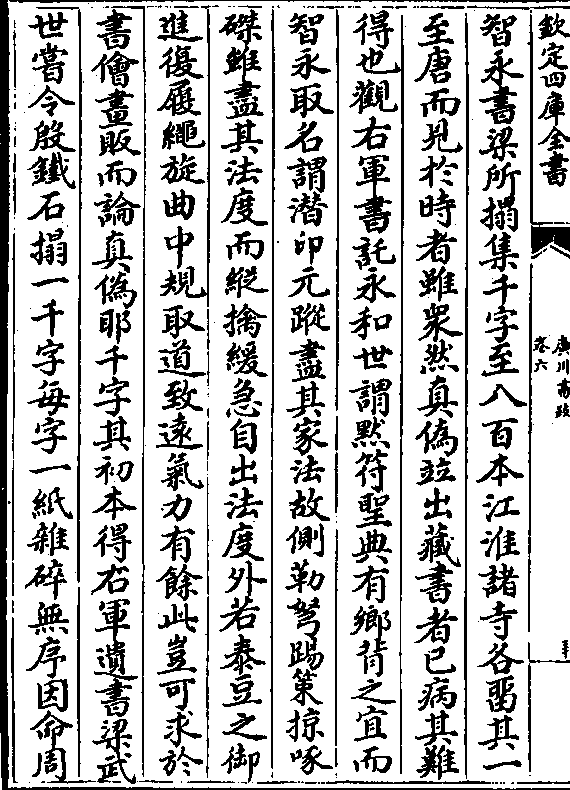 欽定四庫全書
廣川書跋
卷六
智永書梁所搨集千字至八百本江淮諸寺各留其一
至唐而見於時者雖衆然真偽竝出藏書者已病其難
得也觀右軍書託永和世謂黙符聖典有鄉背之宜而
智永取名謂潛印元蹤盡其家法故側勒弩踢策掠啄
磔雖盡其法度而縱擒緩急自出法度外若泰豆之御
進復履繩旋曲中規取道致逺氣力有餘此豈可求於
書儈畫販而論真偽耶千字其初本得右軍遺書梁武
世嘗令殷鐵石搨一千字每字一紙雜碎無序因命周